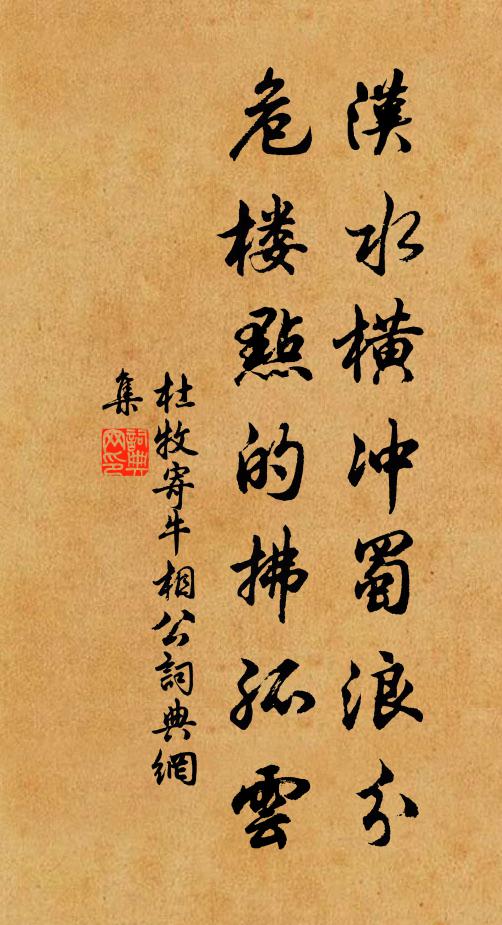 漢水橫冲蜀浪分
危楼點的拂孤雲
杜牧寄牛相公詞典網
集
詞典
网印